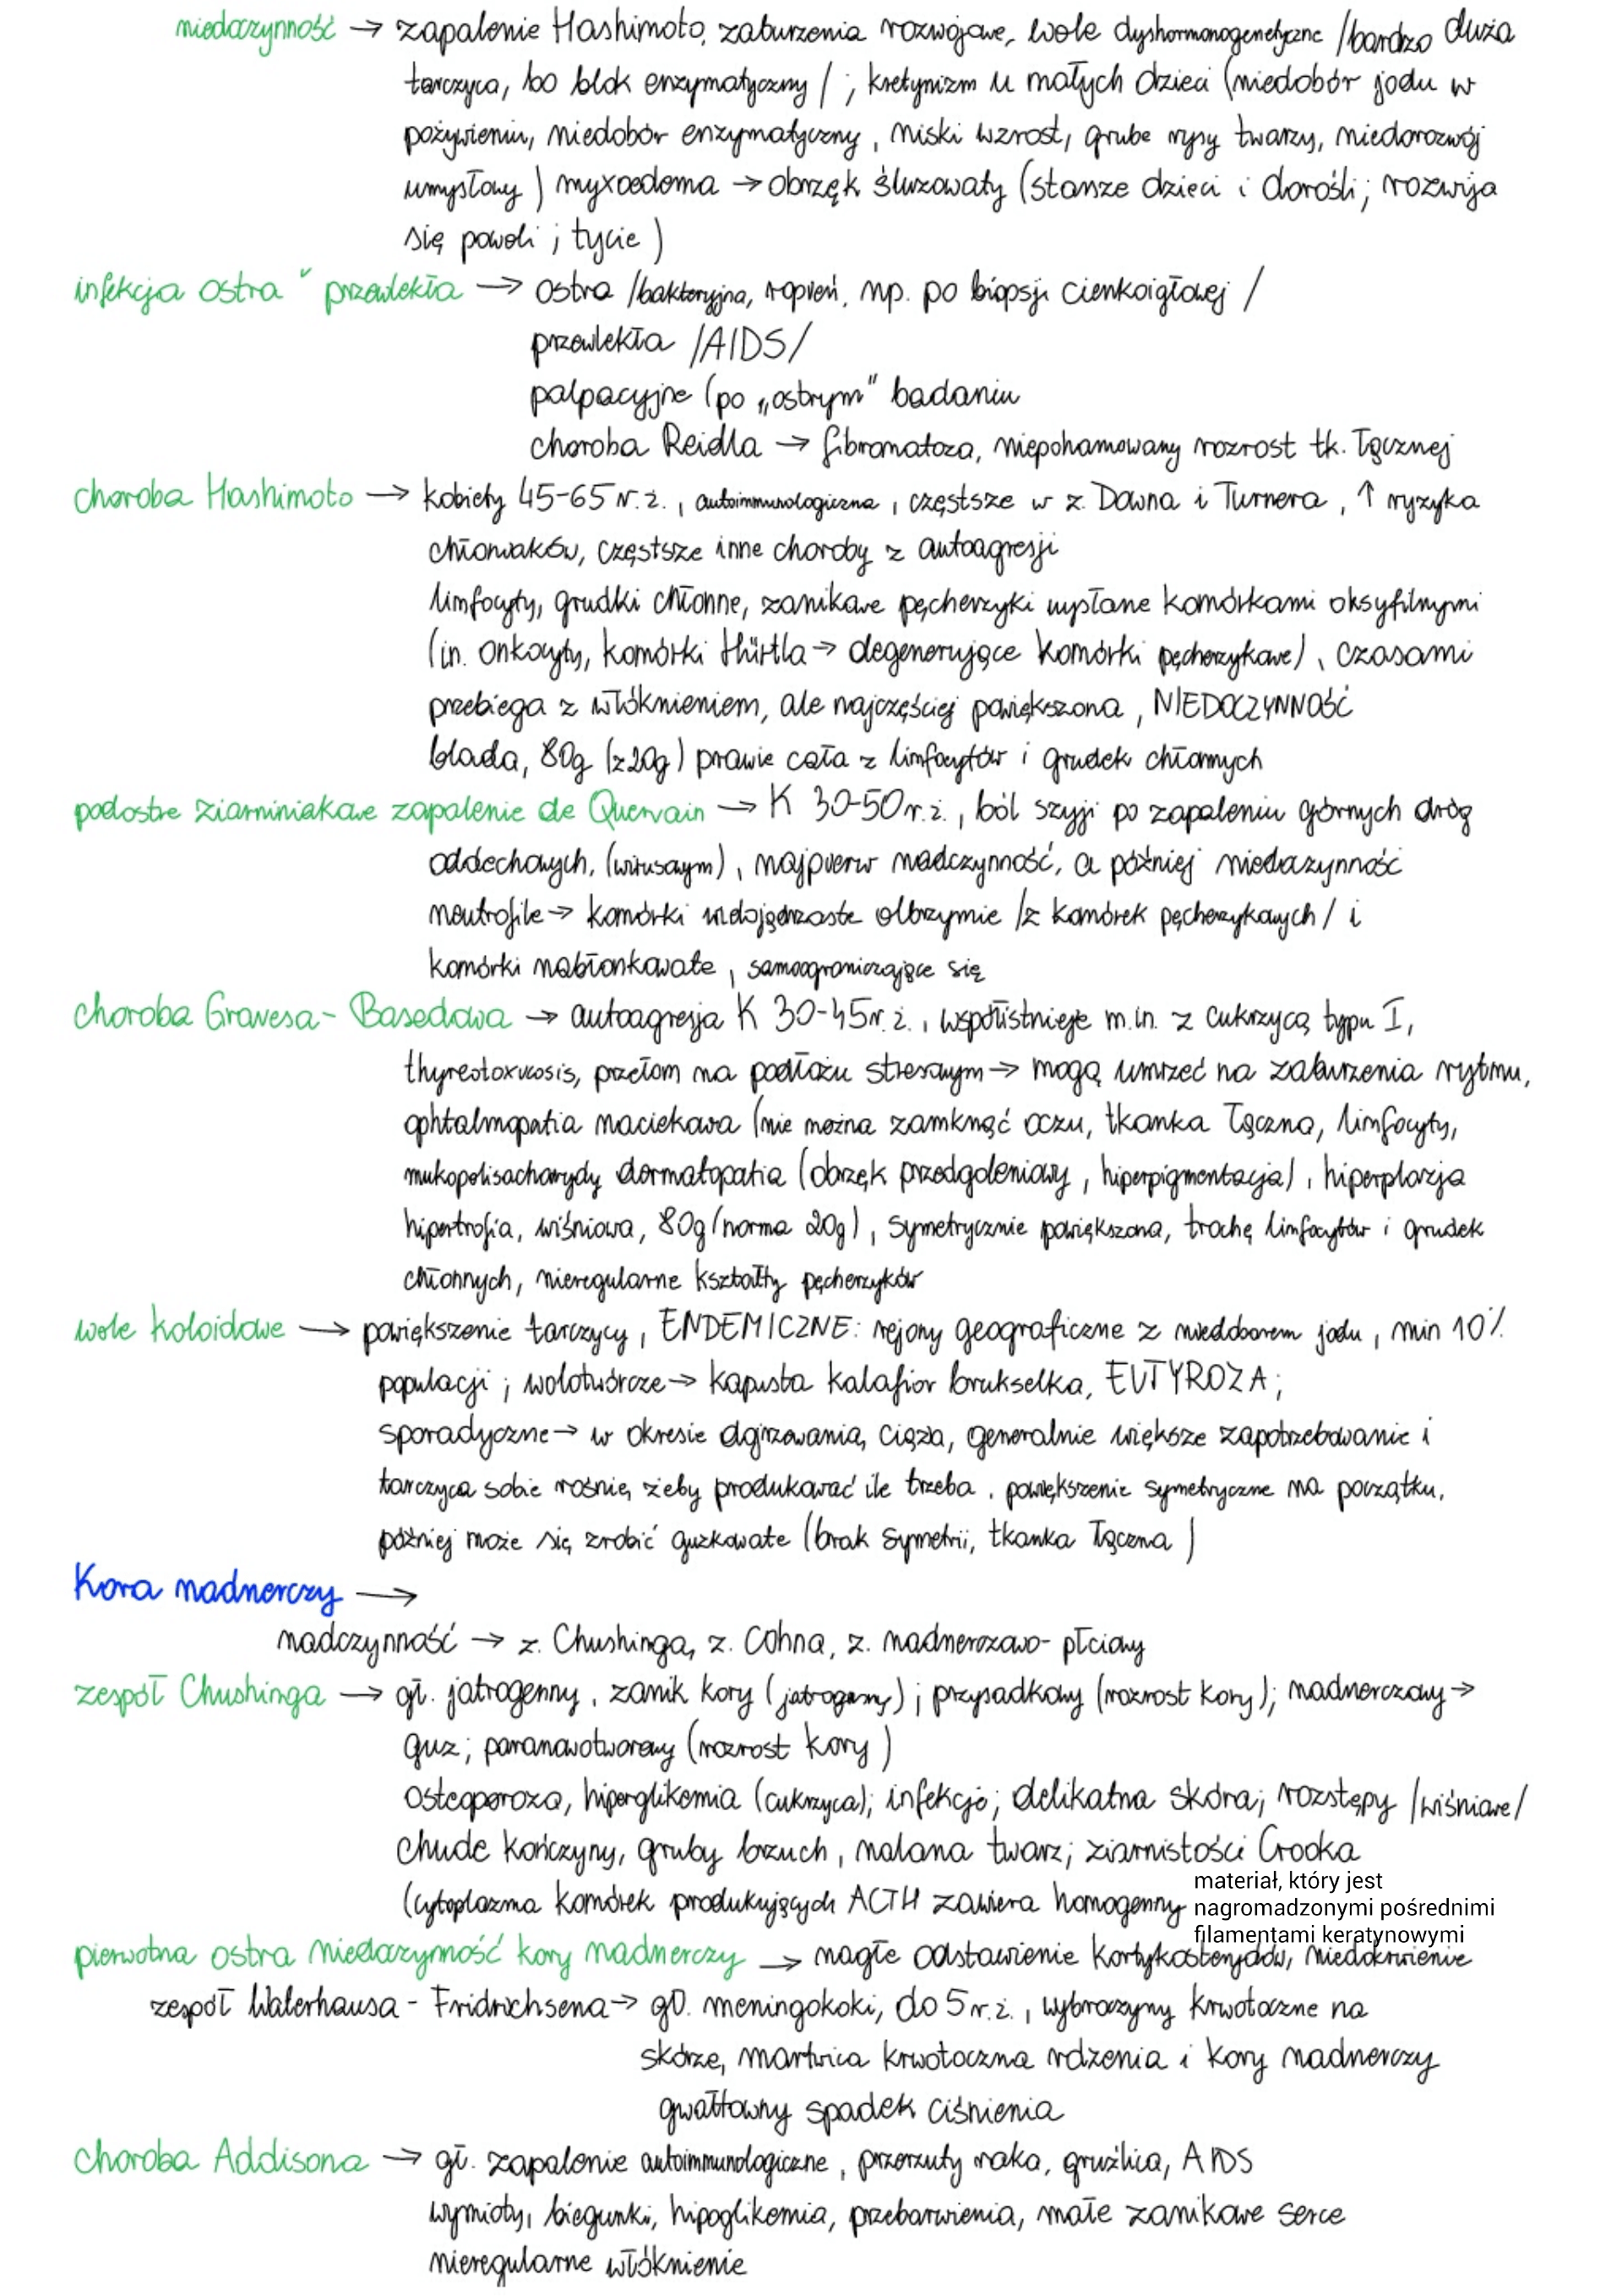 niedoczynność → zapalenie Hashimoto, zaburzenia rozwojowe, wole dyshormonogenetyczne /bardzo duża
tarczyca, bo blok enzymatyczny / ; kretynizm u małych dzieci (niedobór jodu w
pożywieniu, niedobór enzymatyczny, niski wzrost, grube rysy twarzy, niedorozwój
umysłowy ) myxoedema → obrzęk śluzowaty (starsze dzieci i dorośli ; rozwija
się powoli ; tycie )
infekcja ostra v przewlekła → ostra /bakteryjna, ropień, np. po biopsji cienkoigłowej /
przewlekła /AIDS/
palpacyjne (po „ostrym" badaniu
choroba Reidla → fibromatoza, niepohamowany rozrost tk. łącznej
choroba Hashimoto → kobiety 45-65 r. ż. , autoimmunologiczna , częstsze w z. Downa i Turnera , ↑ ryzyka
chłoniaków, częstsze inne choroby z autoagresji
limfocyty, grudki chłonne, zanikowe pęcherzyki wysłane komórkami oksyfilnymi
(in. onkocyty, komórki Hürtla → degenerujące komórki pęcherzykowe) , czasami
przebiega z włóknieniem, ale najczęściej powiększona , NIEDOCZYNNOŚĆ
blada, 80g (z 20g ) prawie cała z limfocytów i grudek chłonnych
podostre ziarniniakowe zapalenie de Quervain → K 30-50 r. ż. , ból szyji po zapaleniu górnych dróg
oddechowych, (wirusowym) , najpierw nadczynność, a później niedoczynność
neutrofile → komórki wielojądrzaste olbrzymie /z komórek pęcherzykowych / i
komórki nabłonkowate , samoograniczające się
choroba Gravesa- Basedowa → autoagresja K 30-45 r. ż. , współistnieje m.in. z cukrzycą typu I,
thyreotoxicosis, przełom na podłożu stresowym → mogą umrzeć na zaburzenia rytmu,
ophtalmopatia naciekowa (nie można zamknąć oczu, tkanka łączna, limfocyty,
mukopolisacharydy dermatopatia (obrzęk przedgoleniowy , hiperpigmentacja) , hiperplazja
hipertrofia, wiśniowa, 80g (norma 20g) , symetrycznie powiększona, trochę limfocytów i grudek
chłonnych, nieregularne kształty pęcherzyków
wole koloidowe → powiększenie tarczycy , ENDEMICZNE: rejony geograficzne z niedoborem jodu , min 10%
populacji ; wolotwórcze → kapusta kalafior brukselka, EUTYROZA ;
sporadyczne → w okresie dojrzewania, ciąża, generalnie większe zapotrzebowanie i
tarczyca sobie rośnie, żeby produkować ile trzeba . powiększenie symetryczne na początku,
później może się zrobić guzkowate (brak symetrii, tkanka łączna )
Kora nadnerczy →
nadczynność → z. Chushinga, z. Cohna, z. nadnerczowo- płciowy
zespół Chushinga → gł. jatrogenny , zanik kory (jatrogenny) ; przysadkowy (rozrost kory) ; nadnerczowy →
guz ; paranowotworowy (rozrost kory )
osteoporoza, hiperglikemia (cukrzyca) ; infekcje ; delikatna skóra ; rozstępy /wiśniowe/
chude kończyny, gruby brzuch , nalana twarz ; ziarnistości Crooka
(cytoplazma komórek produkujących ACTH zawiera homogenny materiał, który jest
nagromadzonymi pośrednimi
filamentami keratynowymi
pierwotna ostra niedoczynność kory nadnerczy → nagłe odstawienie kortykosteryodów, niedokrwienie
zespół Waterhausa - Fridrichsena → gł. meningokoki, do 5 r. ż. , wybroczyny krwotoczne na
skórze, martwica krwotoczna rdzenia i kory nadnerczy
gwałtowny spadek ciśnienia
choroba Addisona → gł. zapalenie autoimmunologiczne , przerzuty raka, gruźlica, AIDS
wymioty, biegunki, hipoglikemia, przebarwienia, małe zanikowe serce
nieregularne włóknienie